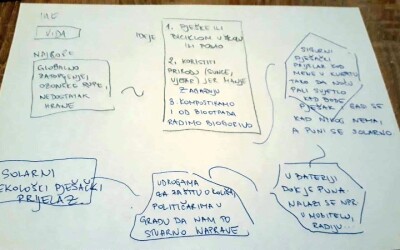 IME
VIDA
NAJGORE
GLOBALNO
ZATOPLJENJE,
OZONSKE RUPE,
NEDOSTATAK
HRANE
IDEJE
1. PJEŠKE ILI
BICIKLOM U ŠKOLU
ILI POSAO
2. KORISTITI
PRIRODU (SUNCE,
VJETAR) JER MANJE
ZAGAĐUJU
3. KOMPOSTIRAMO
I OD BIOOTPADA
RADIMO BIOGORIVO
SOLARNI
PJEŠAČKI
PRIJELAZ KOD
MENE U KVARTU
TAKO DA NOĆU
PALI SVJETLO
KAD BUDE
PJEŠAK GASI SE
KAD NIKOG NEMA,
A PUNI SE SOLARNO
U BATERIJI
DOK JE PUNA.
NALAZI SE NPR.
U MOBITELU,
RADIJU...
UDRUGAMA
ZA ZAŠTITU OKOLIŠA,
POLITIČARIMA U
GRADU DA NAM TO
STVARNO NAPRAVE
SOLARNI
EKOLOŠKI PJEŠAČKI
PRIJELAZ